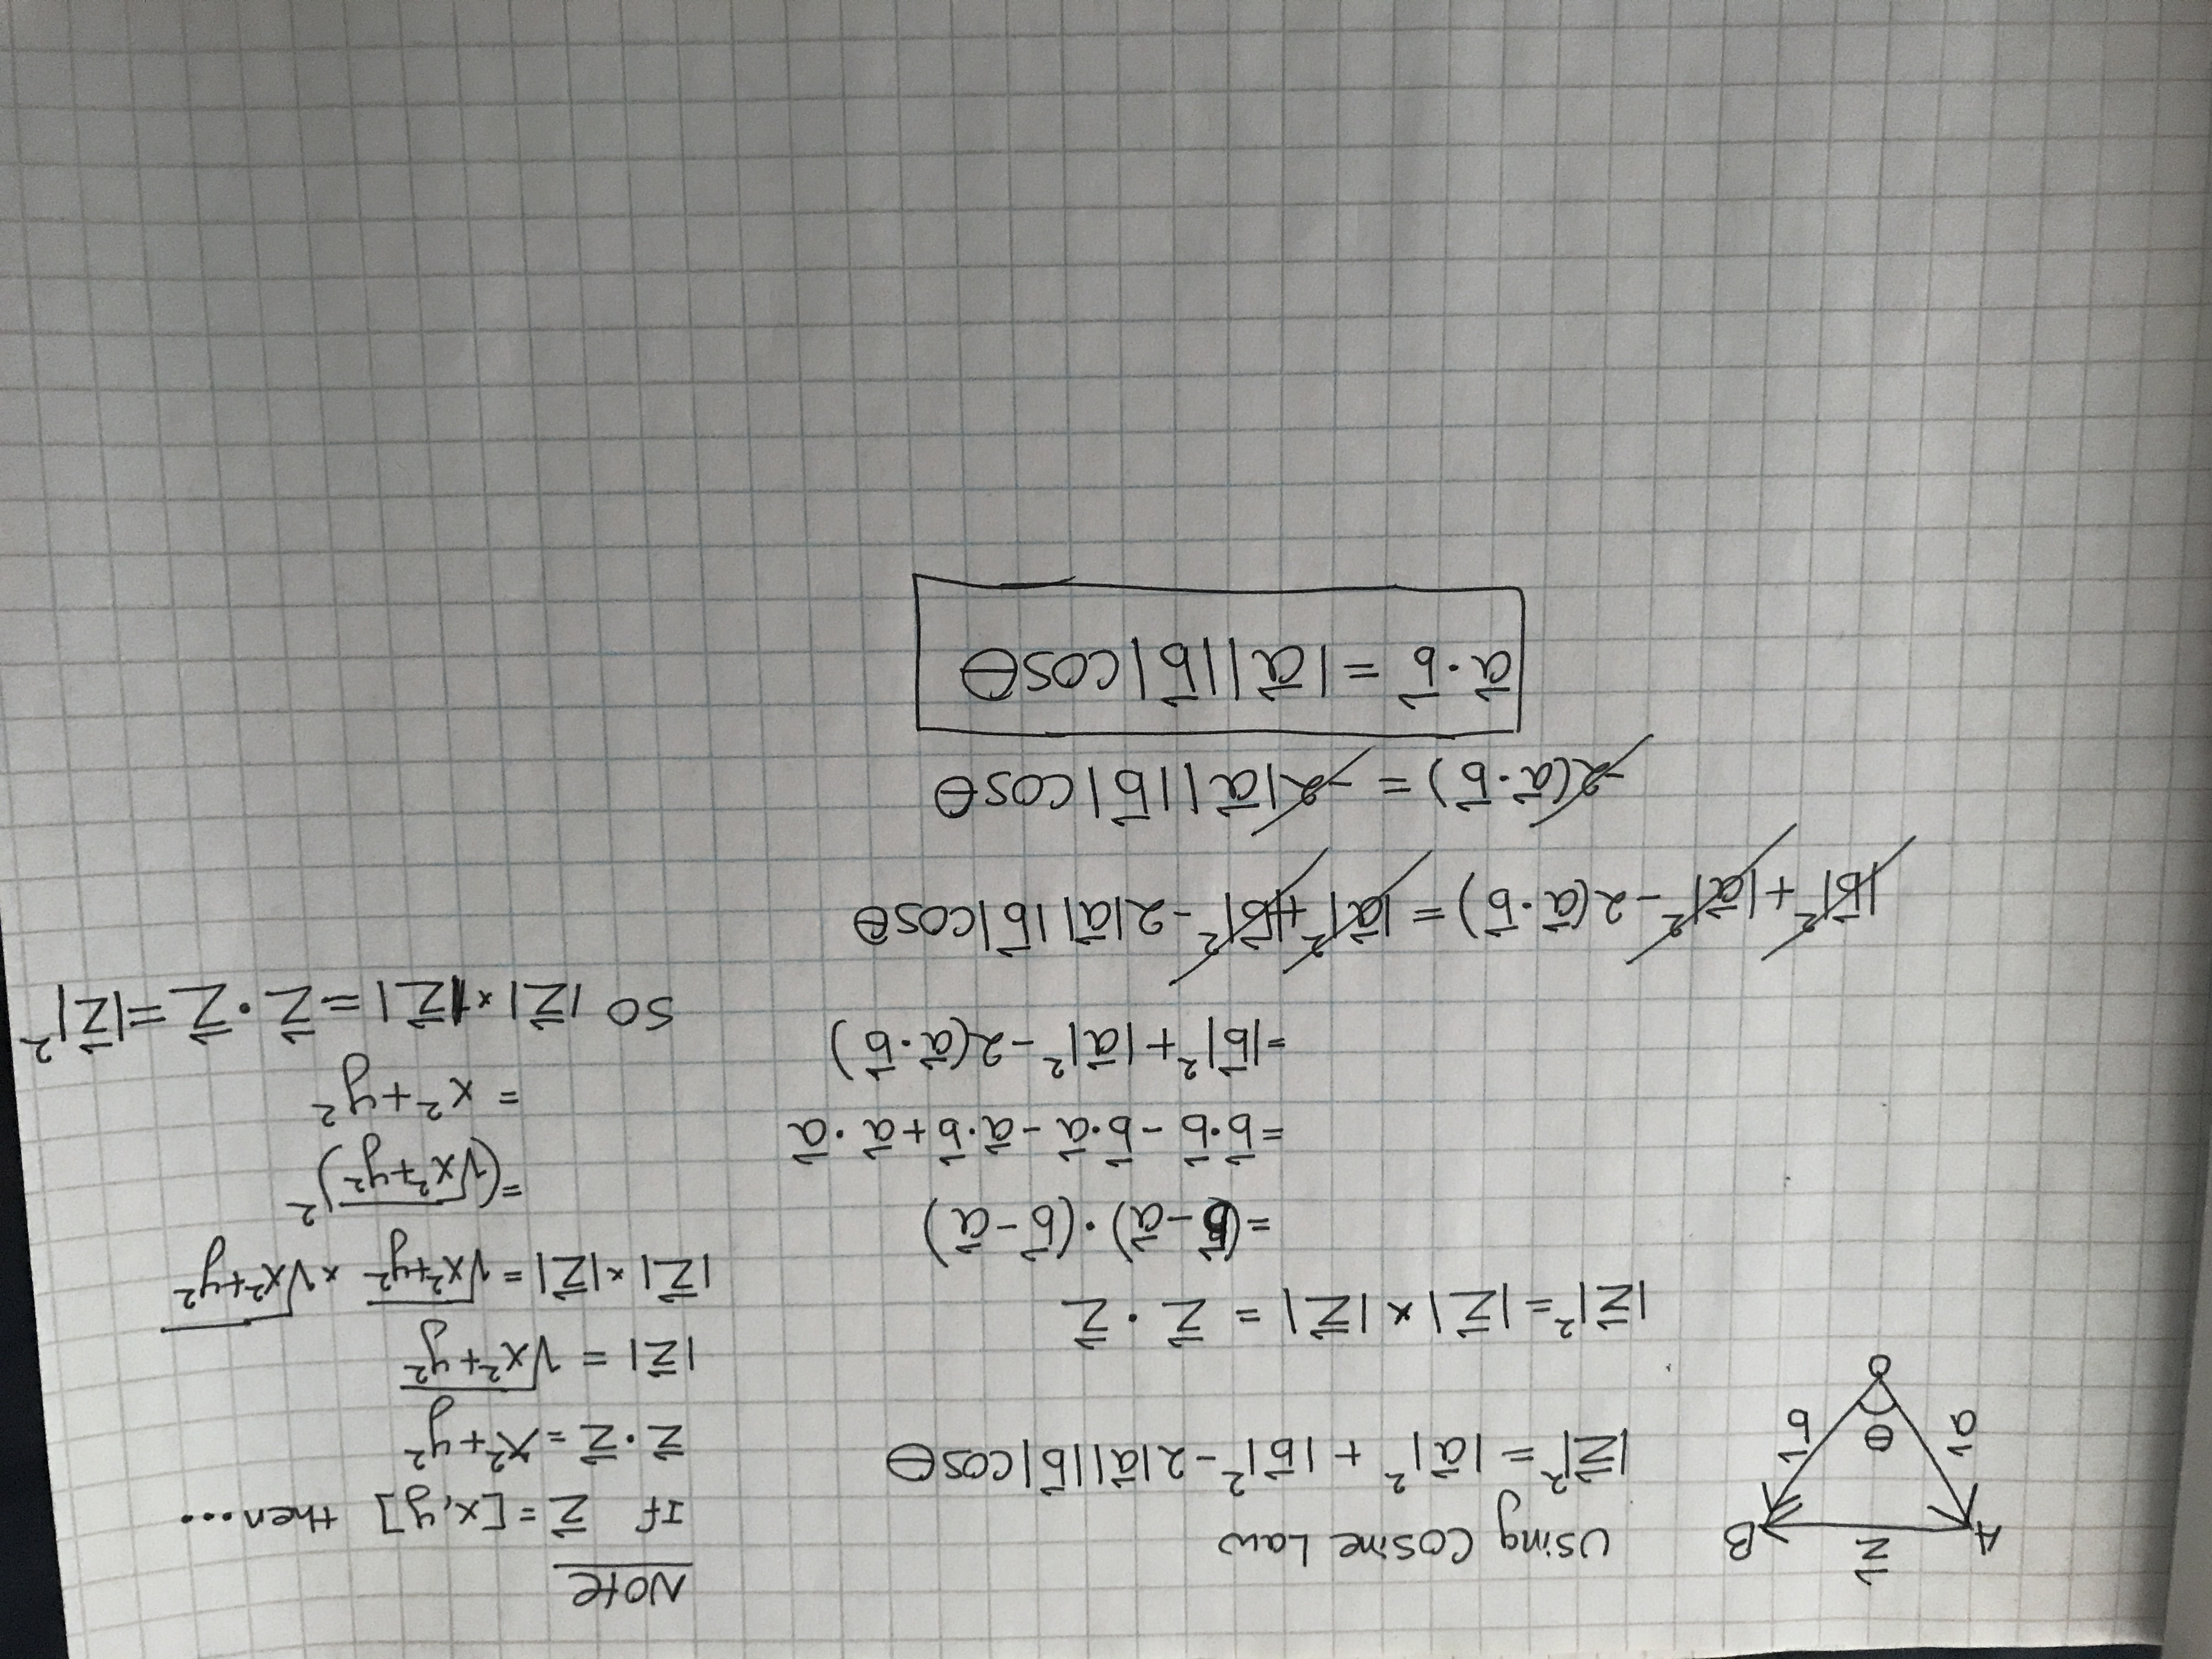 A z⃗ B
a⃗ θ b⃗
O
Using Cosine Law
|z⃗|² = |a⃗|² + |b⃗|² - 2|a⃗||b⃗|cosθ
|z⃗|² = |z⃗| × |z⃗| = z⃗ · z⃗
= (b⃗ - a⃗) · (b⃗ - a⃗)
= b⃗·b⃗ - b⃗·a⃗ - a⃗·b⃗ + a⃗·a⃗
= |b⃗|² + |a⃗|² - 2(a⃗·b⃗)
|b⃗|² + |a⃗|² - 2(a⃗·b⃗) = |a⃗|² + |b⃗|² - 2|a⃗||b⃗|cosθ
-2(a⃗·b⃗) = -2|a⃗||b⃗|cosθ
a⃗·b⃗ = |a⃗||b⃗|cosθ
Note
If z⃗ = [x,y] then...
z⃗·z⃗ = x²+y²
|z⃗| = √(x²+y²)
|z⃗|×|z⃗| = √(x²+y²) × √(x²+y²)
= (√(x²+y²))²
= x²+y²
so |z⃗|×|z⃗| = z⃗·z⃗ = |z⃗|²